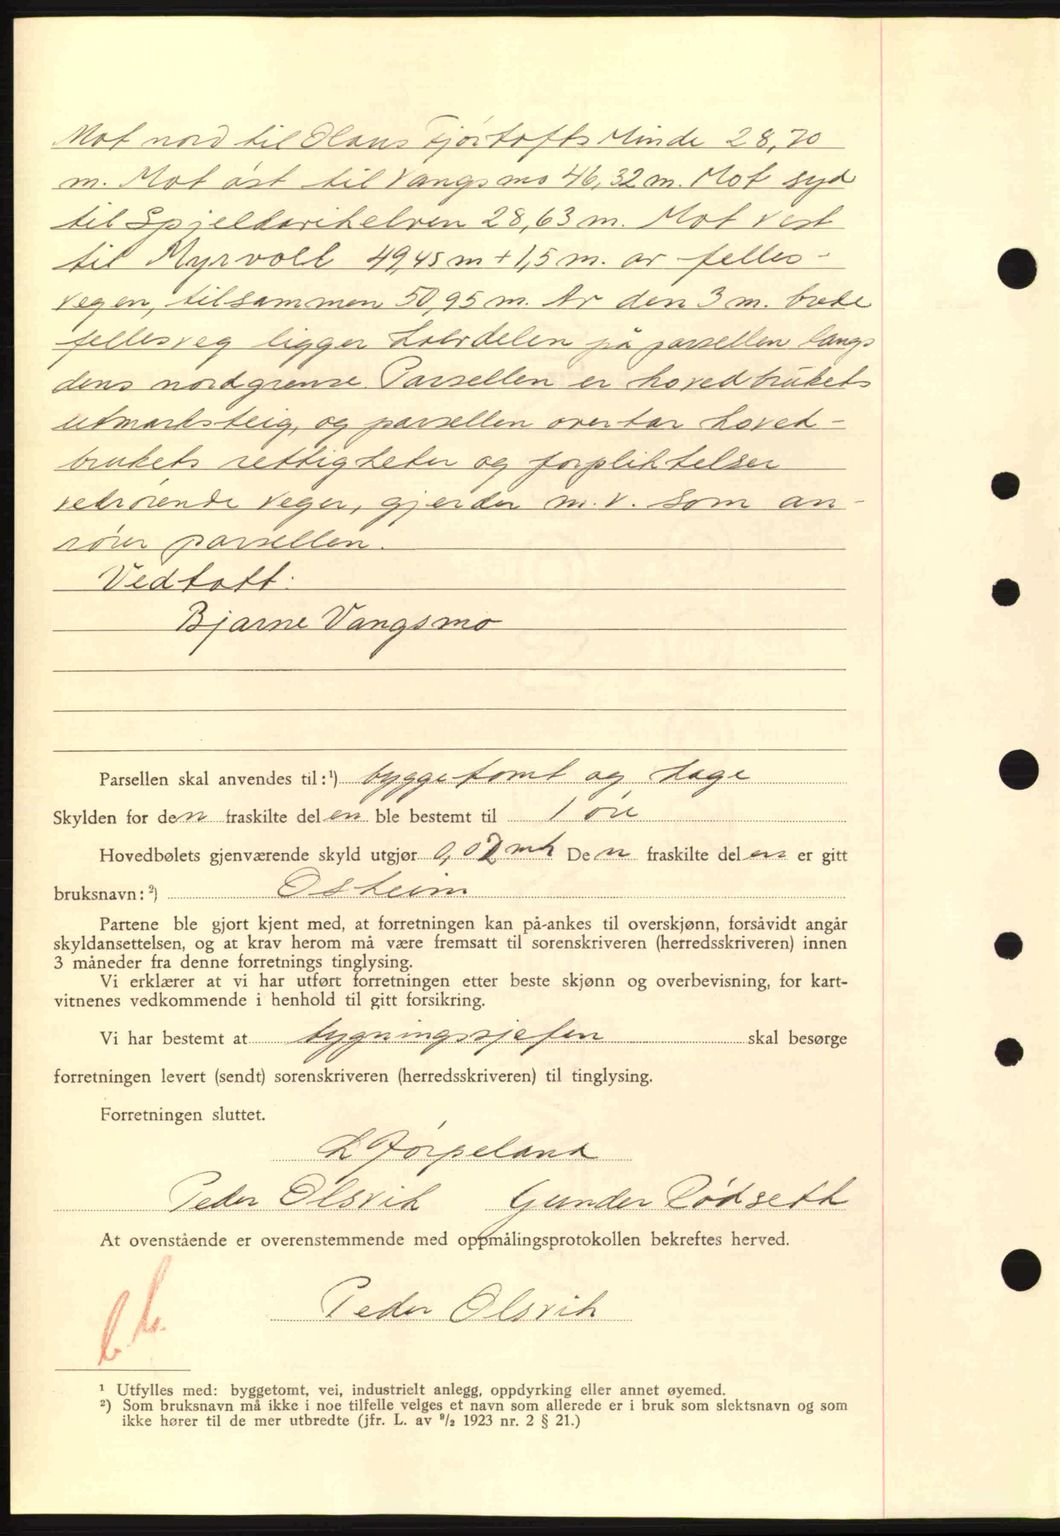 Mot nord til Olaus Fjørtofts Minde 28,70
m. Mot øst til Vangsmo 46,32 m. Mot syd
til Spjeldavikelven 28,63 m. Mot vest
til Myrvoll 49,45 m + 1,5 m. av felles-
vegen, tilsammen 50,95 m. Av den 3 m. brede
fellesveg ligger halvdelen på parsellen langs
dens nordgrense. Parsellen er hovedbrukets
utmarksteig, og parsellen overtar hoved-
brukets rettigheter og forpliktelser
vedrørende veger, gjerder m.v. som an-
rører parsellen.
Vedtatt:
Bjarne Vangsmo
Parsellen skal anvendes til:¹) byggetomt og hage
Skylden for den fraskilte delen ble bestemt til 1 øre
Hovedbølets gjenværende skyld utgjør 0,02 mk Den fraskilte delen er gitt
bruksnavn:²) Osheim
Partene ble gjort kjent med, at forretningen kan på-ankes til overskjønn, forsåvidt angår
skyldansettelsen, og at krav herom må være fremsatt til sorenskriveren (herredsskriveren) innen
3 måneder fra denne forretnings tinglysing.
Vi erklærer at vi har utført forretningen etter beste skjønn og overbevisning, for kart-
vitnenes vedkommende i henhold til gitt forsikring.
Vi har bestemt at bygningssjefen skal besørge
forretningen levert (sendt) sorenskriveren (herredsskriveren) til tinglysing.
Forretningen sluttet.
L Jørpeland
Peder Olsvik Gunder Rødseth
At ovenstående er overenstemmende med oppmålingsprotokollen bekreftes herved.
Peder Olsvik
¹ Utfylles med: byggetomt, vei, industrielt anlegg, oppdyrking eller annet øyemed.
²) Som bruksnavn må ikke i noe tilfelle velges et navn som allerede er i bruk som slektsnavn og som
ikke hører til de mer utbredte (jfr. L. av ⁹/₂ 1923 nr. 2 § 21.)